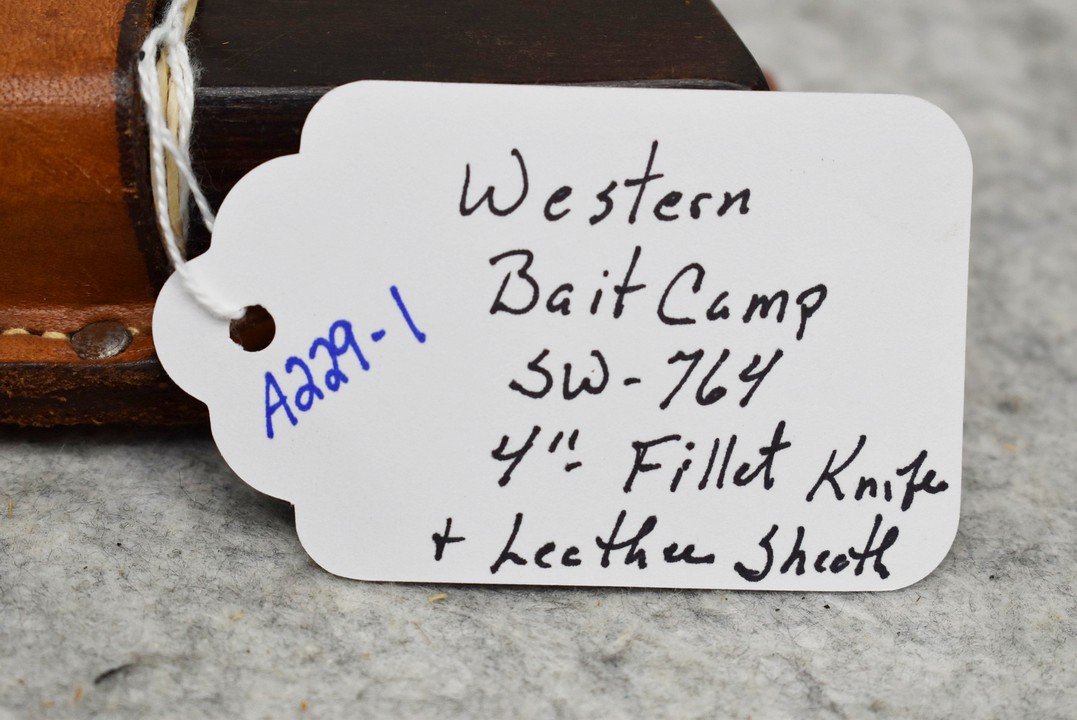 Western
Bait Camp
SW-764
4" Fillet Knife
+ Leather Sheath
A229-1